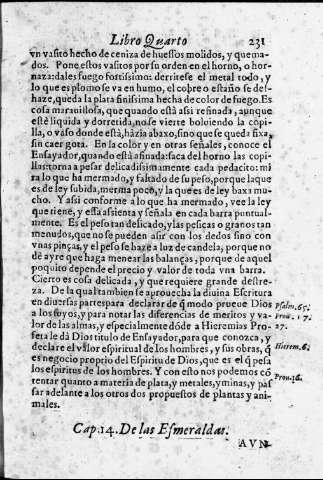 Libro Quarto 231
vn vasito hecho de ceniza de huessos molidos, y quema-
dos. Pone estos vasitos por su orden en el horno, o hor-
naza: dales fuego fortissimo: derritese el metal todo, y
lo que es plomo se va en humo, el cobre o estaño se des-
haze, queda la plata finissima hecha de color de fuego. Es
cosa marauillosa, que quando està assi refinada, aunque
estè liquida y dorretida, no se vierte boluiendo la copi-
lla, o vaso donde està, hàzia abaxo, sino que se queda fixa,
sin caer gota. En la color y en otras señales, conoce el
Ensayador, quando està afinada: saca del horno las copi-
llas: torna a pesar delicadissimamente cada pedacito: mi
ra lo que ha mermado, y faltado de su peso, porque la que
es de ley subida, merma poco, y la que es de ley baxa mu-
cho. Y assi conforme a lo que ha mermado, vee la ley
que tiene, y essa assienta y señala en cada barra puntual-
mente. Es el peso tan delicado, y las pesicas o granos tan
menudos, que no se pueden asir con los dedos sino con
vnas pinças, y el peso se haze a luz de candela, porque no
dè ayre que haga menear las balanças, porque de aquel
poquito depende el precio y valor de toda vna barra.
Cierto es cosa delicada, y que requiere grande destre-
za. De la qual tambien se aprouecha la diuina Escritura
en diuersas partes para declarar de q̃ modo prueue Dios
a los suyos, y para notar las diferencias de meritos y va-
lor de las almas, y especialmente dõde a Hieremias Pro-
feta le dà Dios titulo de Ensayador, para que conozca, y
declare el valor espiritual de los hombres, y sus obras, q̃
es negocio proprio del Espiritu de Dios, que es el q̃ pesa
los espiritus de los hombres. Y con esto nos podemos cõ
tentar quanto a materia de plata, y metales, y minas, y pas
sar adelante a los otros dos propuestos de plantas y ani-
males.
Psalm. 65.
Prou. 17.
27.
Hierem. 6.
Prou. 16.
Cap. 14. De las Esmeraldas.
AVN